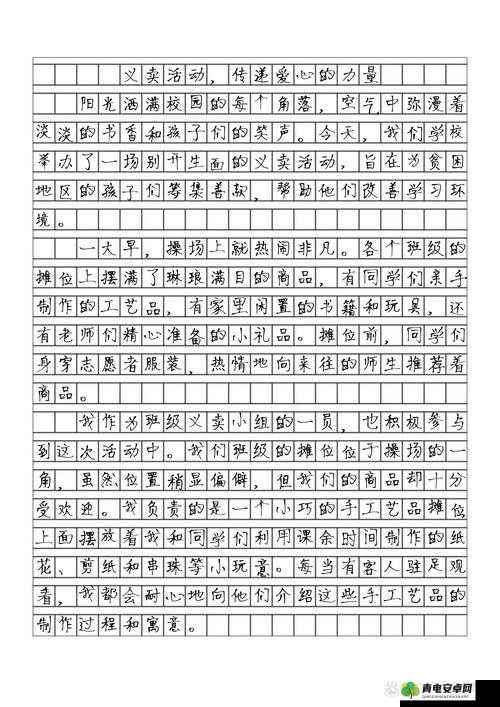 义卖活动，传递爱心的力量
阳光洒满校园的每个角落，空气中弥漫着
淡淡的书香和孩子们的笑声。今天，我们学校
举办了一场别开生面的义卖活动，旨在为贫困
地区的孩子们筹集善款，帮助他们改善学习环
境。
一大早，操场上就热闹非凡。各个班级的
摊位上摆满了琳琅满目的商品，有同学们亲手
制作的工艺品，有家里闲置的书籍和玩具，还
有老师们精心准备的小礼品。摊位前，同学们
身穿志愿者服装，热情地向来往的师生推荐着
商品。
我作为班级义卖小组的一员，也积极参与
到这次活动中。我们班级的摊位位于操场的一
角，虽然位置稍显偏僻，但我们的商品却十分
受欢迎。我负责的是一个小巧的手工艺品摊位
上面摆放着我和同学们利用课余时间制作的纸
花、剪纸和串珠等小玩意。每当有客人驻足观
看，我都会耐心地向他们介绍这些手工艺品的
制作过程和寓意。
青电安卓网